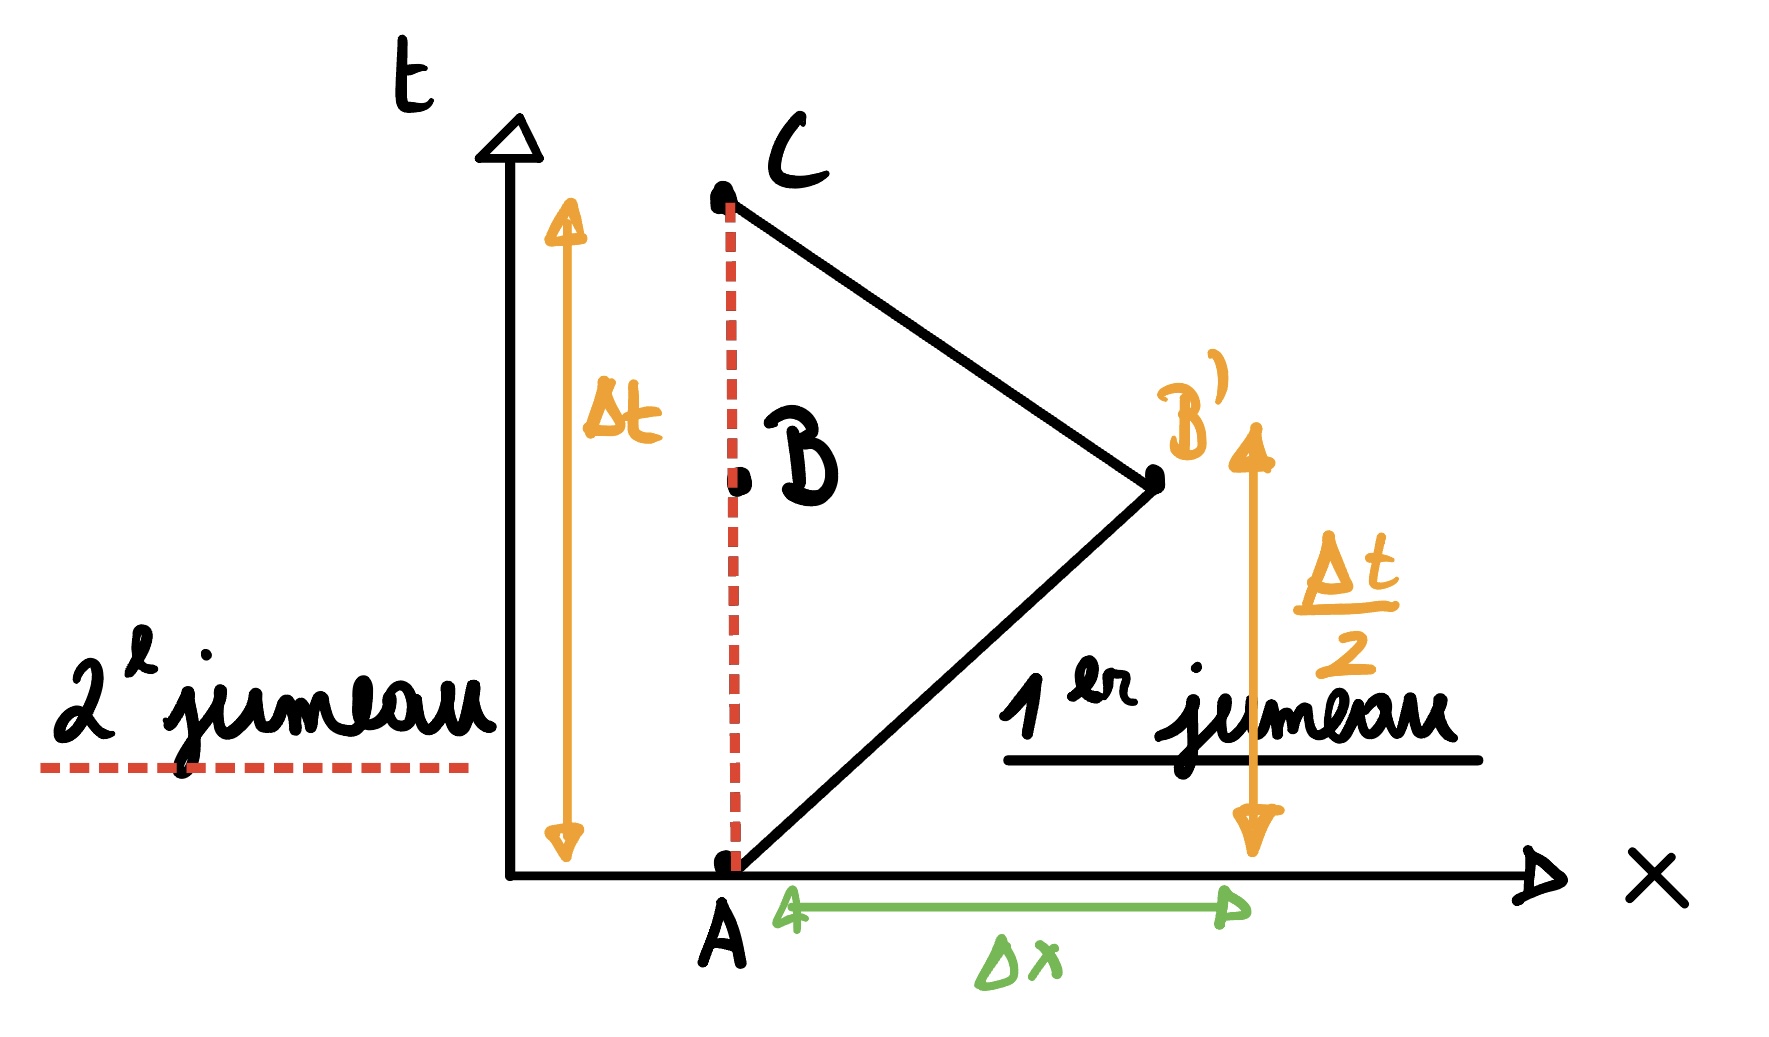 t
C
Δt
B'
B
Δt
2
2e jumeau
1er jumeau
x
A
Δx